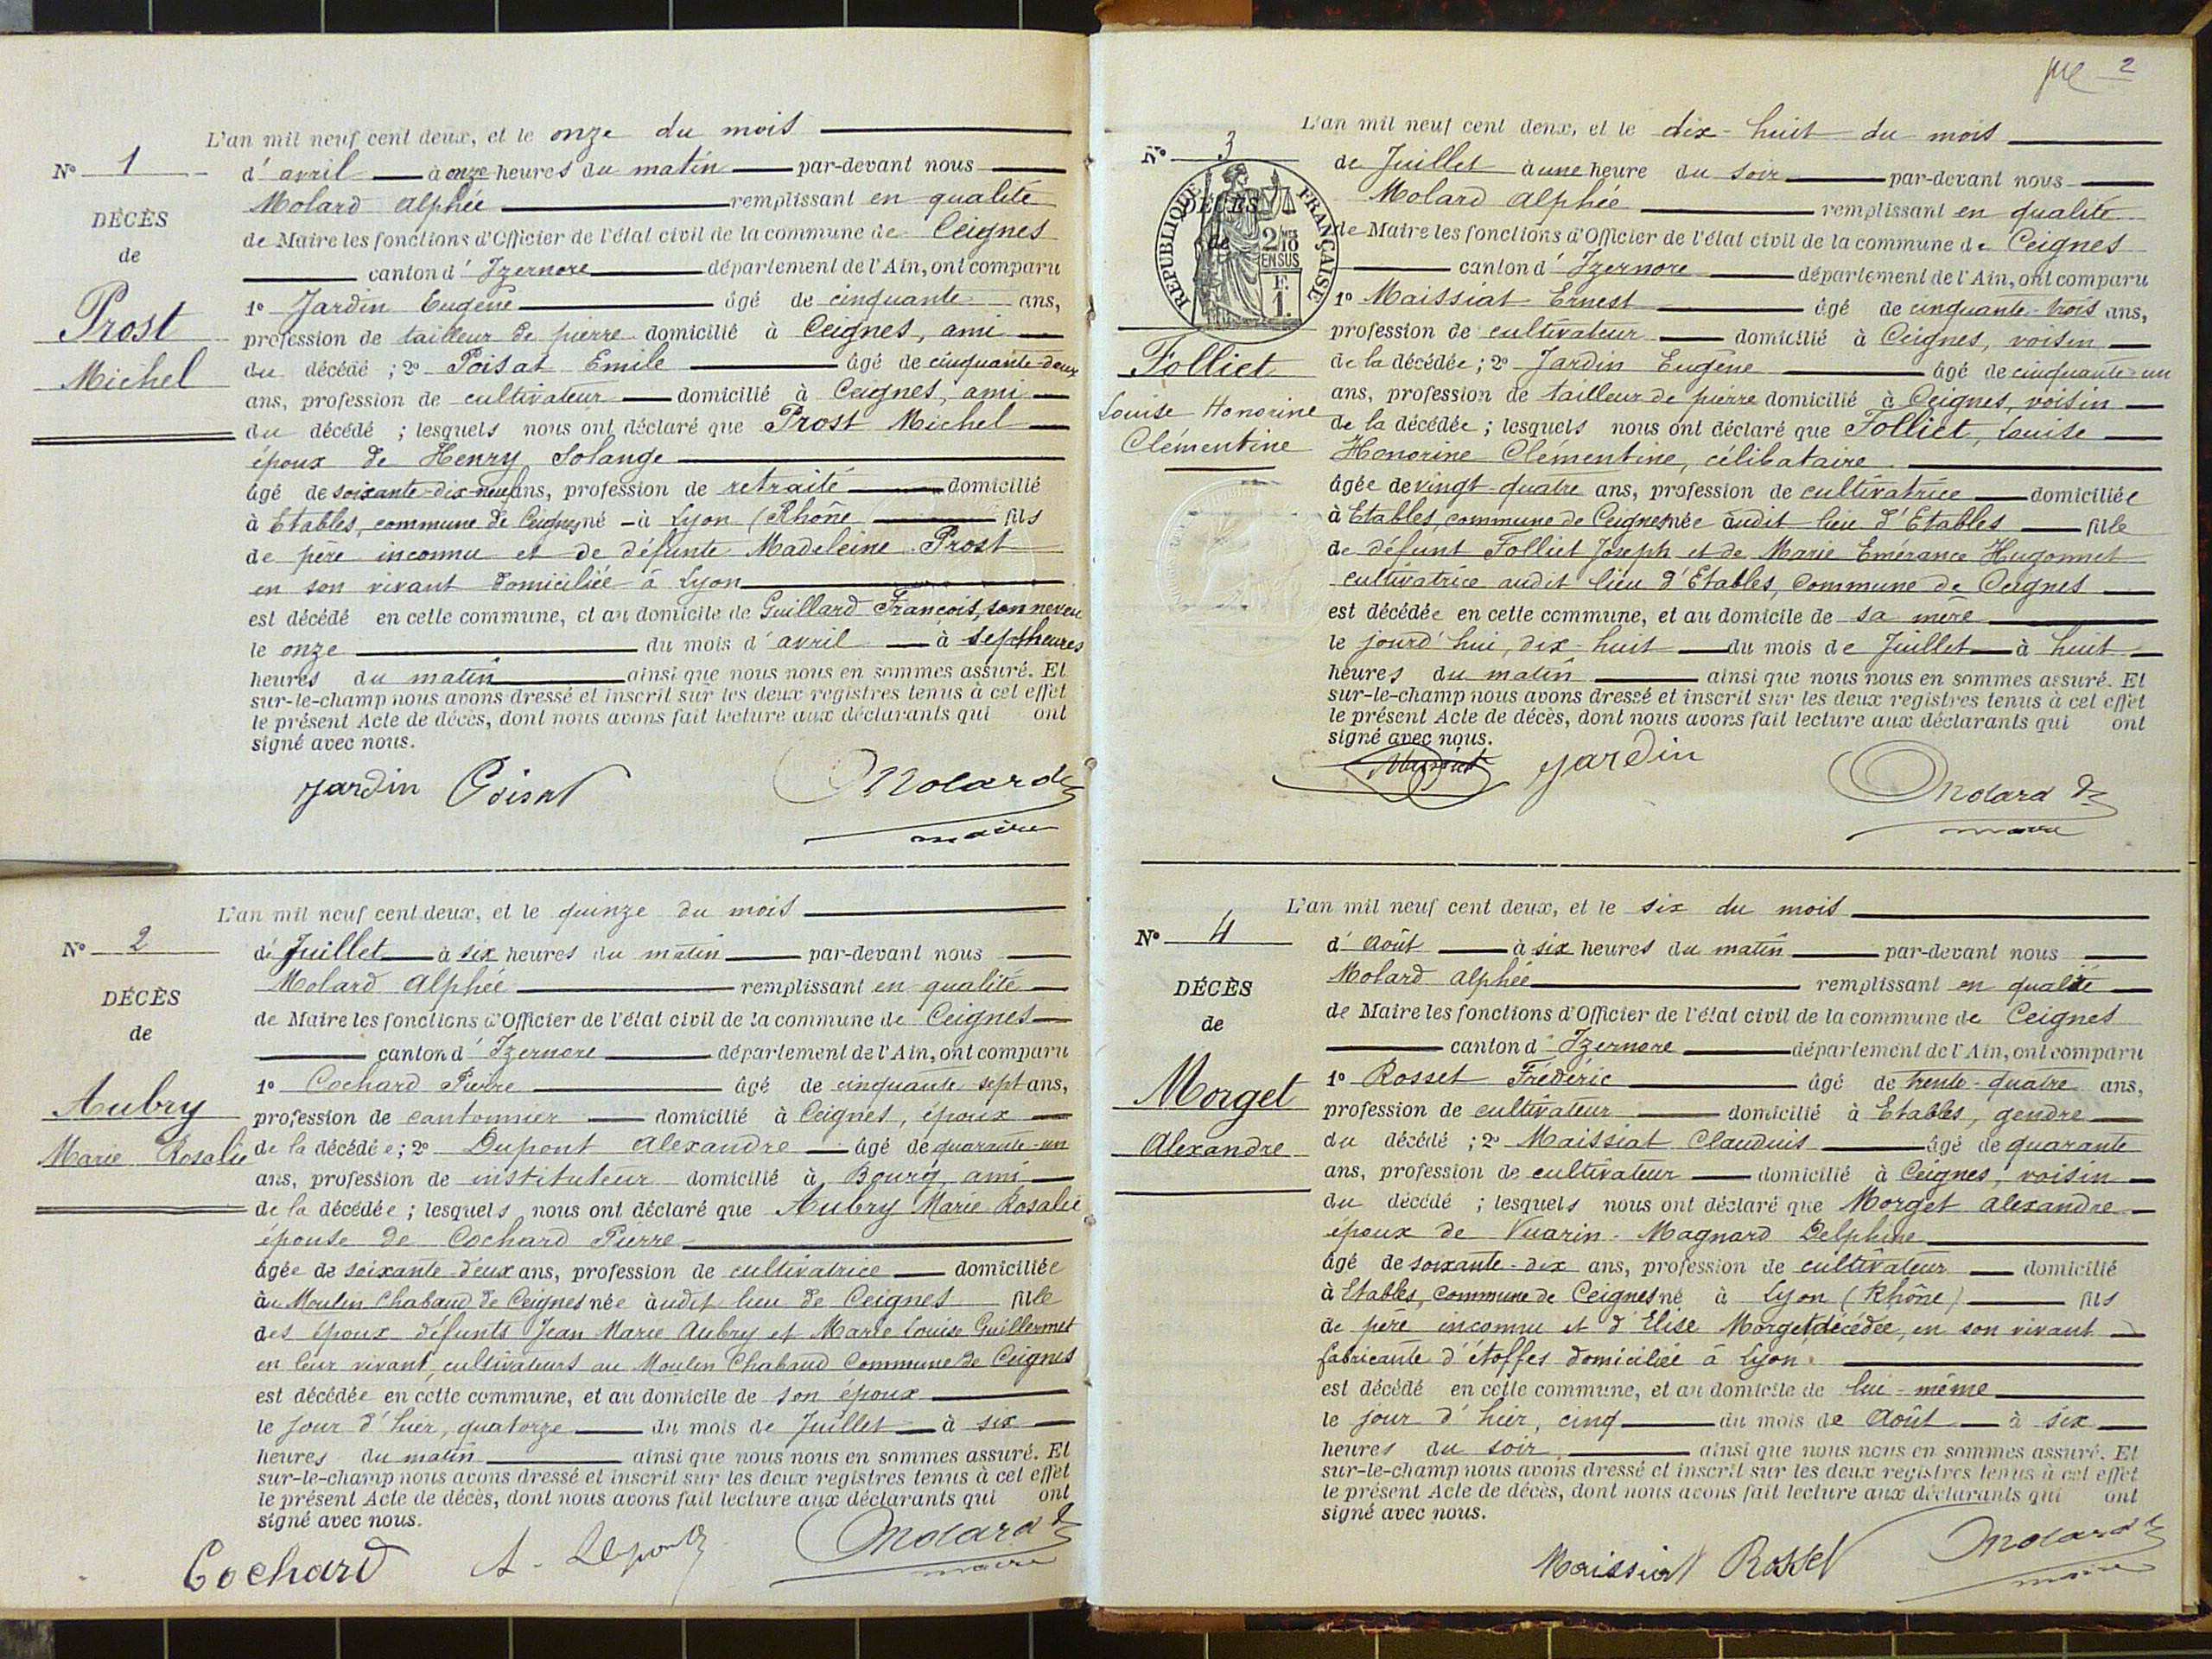 L'an mil neuf cent deux, et le onze du mois
N° 1
d'avril à onze heures du matin par-devant nous
Molard Alphée remplissant en qualité
DÉCÈS
de Maire les fonctions d'Officier de l'état civil de la commune de Ceignes
de
canton d'Izernore département de l'Ain, ont comparu
1° Jardin Eugène âgé de cinquante ans,
Prost
profession de tailleur de pierre domicilié à Ceignes, ami
Michel
du décédé ; 2° Poisat Emile âgé de cinquante-deux
ans, profession de cultivateur domicilié à Ceignes, ami
du décédé ; lesquels nous ont déclaré que Prost Michel
époux de Henry Solange
âgé de soixante-dix-neuf ans, profession de retraité domicilié
à Etables, commune de Ceignes né à Lyon (Rhône) fils
de père inconnu et de défunte Madeleine Prost
en son vivant domiciliée à Lyon
est décédé en cette commune, et au domicile de Guillard François, son neveu
le onze du mois d'avril à sept heures
heures du matin ainsi que nous nous en sommes assuré. Et
sur-le-champ nous avons dressé et inscrit sur les deux registres tenus à cet effet
le présent Acte de décès, dont nous avons fait lecture aux déclarants qui ont
signé avec nous.
Jardin Poisat Molard
maire
L'an mil neuf cent deux, et le quinze du mois
N° 2
de Juillet à six heures du matin par-devant nous
Molard Alphée remplissant en qualité
DÉCÈS
de Maire les fonctions d'Officier de l'état civil de la commune de Ceignes
de
canton d'Izernore département de l'Ain, ont comparu
1° Cochard Pierre âgé de cinquante sept ans,
Aubry
profession de cantonnier domicilié à Ceignes, époux
Marie Rosalie
de la décédée ; 2° Dupont Alexandre âgé de quarante-un
ans, profession de instituteur domicilié à Bourg, ami
de la décédée ; lesquels nous ont déclaré que Aubry Marie Rosalie
épouse de Cochard Pierre
âgée de soixante-deux ans, profession de cultivatrice domiciliée
au Moulin Chabaud de Ceignes née audit lieu de Ceignes fille
des époux défunts Jean Marie Aubry et Marie Louise Guillermet
en leur vivant, cultivateurs au Moulin Chabaud Commune de Ceignes
est décédée en cette commune, et au domicile de son époux
le jour d'hier, quatorze du mois de Juillet à six
heures du matin ainsi que nous nous en sommes assuré. Et
sur-le-champ nous avons dressé et inscrit sur les deux registres tenus à cet effet
le présent Acte de décès, dont nous avons fait lecture aux déclarants qui ont
signé avec nous.
Cochard A. Dupont Molard
maire
2
L'an mil neuf cent deux, et le dix-huit du mois
N° 3
de Juillet à une heure du soir par-devant nous
Molard Alphée remplissant en qualité
DÉCÈS
de
RÉPUBLIQUE FRANÇAISE
2/10 EN SUS
F. 1.
de Maire les fonctions d'Officier de l'état civil de la commune de Ceignes
canton d'Izernore département de l'Ain, ont comparu
1° Maissiat Ernest âgé de cinquante-trois ans,
profession de cultivateur domicilié à Ceignes, voisin
Folliet
de la décédée ; 2° Jardin Eugène âgé de cinquante-un
ans, profession de tailleur de pierre domicilié à Ceignes, voisin
Louise Honorine
Clémentine
de la décédée ; lesquels nous ont déclaré que Folliet, Louise
Honorine Clémentine, célibataire
âgée de vingt-quatre ans, profession de cultivatrice domiciliée
à Etables, commune de Ceignes née audit lieu d'Etables fille
de défunt Folliet Joseph et de Marie Emérance Hugonnet
cultivatrice audit lieu d'Etables, Commune de Ceignes
est décédée en cette commune, et au domicile de sa mère
le jourd'hui, dix-huit du mois de Juillet à huit
heures du matin ainsi que nous nous en sommes assuré. Et
sur-le-champ nous avons dressé et inscrit sur les deux registres tenus à cet effet
le présent Acte de décès, dont nous avons fait lecture aux déclarants qui ont
signé avec nous.
Jardin Molard
maire
L'an mil neuf cent deux, et le six du mois
N° 4
d'Août à six heures du matin par-devant nous
Molard Alphée remplissant en qualité
DÉCÈS
de Maire les fonctions d'Officier de l'état civil de la commune de Ceignes
de
canton d'Izernore département de l'Ain, ont comparu
1° Rosset Frédéric âgé de trente-quatre ans,
Morget
profession de cultivateur domicilié à Etables, gendre
Alexandre
du décédé ; 2° Maissiat Claudius âgé de quarante
ans, profession de cultivateur domicilié à Ceignes, voisin
du décédé ; lesquels nous ont déclaré que Morget Alexandre
époux de Vuarin-Magnard Delphine
âgé de soixante-dix ans, profession de cultivateur domicilié
à Etables, Commune de Ceignes né à Lyon (Rhône) fils
de père inconnu et d'Elise Morget décédée, en son vivant
fabricante d'étoffes domiciliée à Lyon
est décédé en cette commune, et au domicile de lui-même
le jour d'hier, cinq du mois de Août à six
heures du soir ainsi que nous nous en sommes assuré. Et
sur-le-champ nous avons dressé et inscrit sur les deux registres tenus à cet effet
le présent Acte de décès, dont nous avons fait lecture aux déclarants qui ont
signé avec nous.
Maissiat Rosset Molard
maire